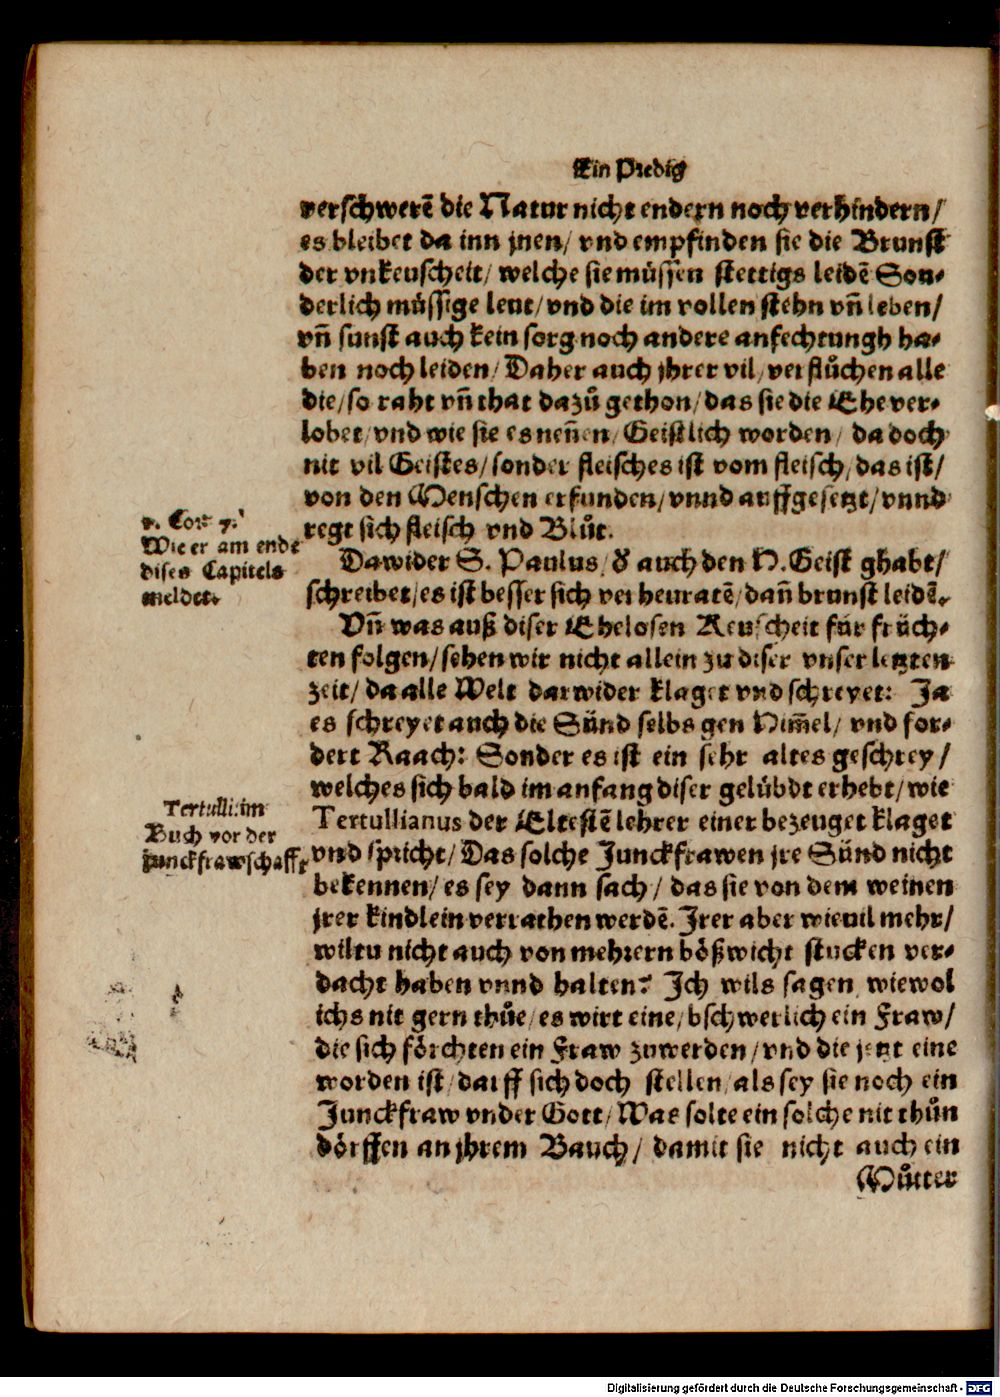 Ein Predig
verschwerẽ die Natur nicht endern noch verhindern/
es bleibet da inn jnen/ vnd empfinden sie die Brunst
der vnkeuscheit/ welche sie müssen stettigs leidẽ Son-
derlich müssige leut/ vnd die im vollen stehn vñ leben/
vñ sunst auch kein sorg noch andere anfechtungh ha-
ben noch leiden/ Daher auch jhrer vil/ verflůchen alle
die/ so raht vñ that dazů gethon/ das sie die Ehe ver-
lobet/ vnd wie sie es neñen/ Geistlich worden/ da doch
nit vil Geistes/ sonder fleisches ist vom fleisch/ das ist/
von den Menschen erfunden/ vnnd auffgesetzt/ vnnd
regt sich fleisch vnd Blůt.
1. Cor: 7.
Wie er am ende
dises Capitels
meldet.
Dawider S. Paulus/ d' auch den H. Geist ghabt/
schreibet/ es ist besser sich verheuratẽ/ dañ brunst leidẽ.
Vñ was auß diser Ehelosen Keuscheit für früch-
ten folgen/ sehen wir nicht allein zu diser vnser letzten
zeit/ da alle Welt darwider klaget vnd schreyet: Ja
es schreyet auch die Sünd selbs gen Him̃el/ vnd for-
dert Raach: Sonder es ist ein sehr altes geschrey/
welches sich bald im anfang diser gelübdt erhebt/ wie
Tertullianus der Eltestẽ lehrer einer bezeuget klaget
vnd spricht/ Das solche Junckfrawen jre Sünd nicht
bekennen/ es sey dann sach/ das sie von dem weinen
jrer kindlein verrathen werdẽ. Jrer aber wieuil mehr/
wiltu nicht auch von mehrern bößwicht stucken ver-
dacht haben vnnd halten? Ich wils sagen/ wiewol
ichs nit gern thůe/ es wirt eine/ bschwerlich ein Fraw/
die sich förchten ein Fraw zuwerden/ vnd die jetzt eine
worden ist/ darff sich doch stellen/ als sey sie noch ein
Junckfraw vnder Gott/ Was solte ein solche nit thůn
dörffen an jhrem Bauch/ damit sie nicht auch ein
Můtter
Tertulli: im
Buch vor der
junckfrawschafft
Digitalisierung gefördert durch die Deutsche Forschungsgemeinschaft - DFG